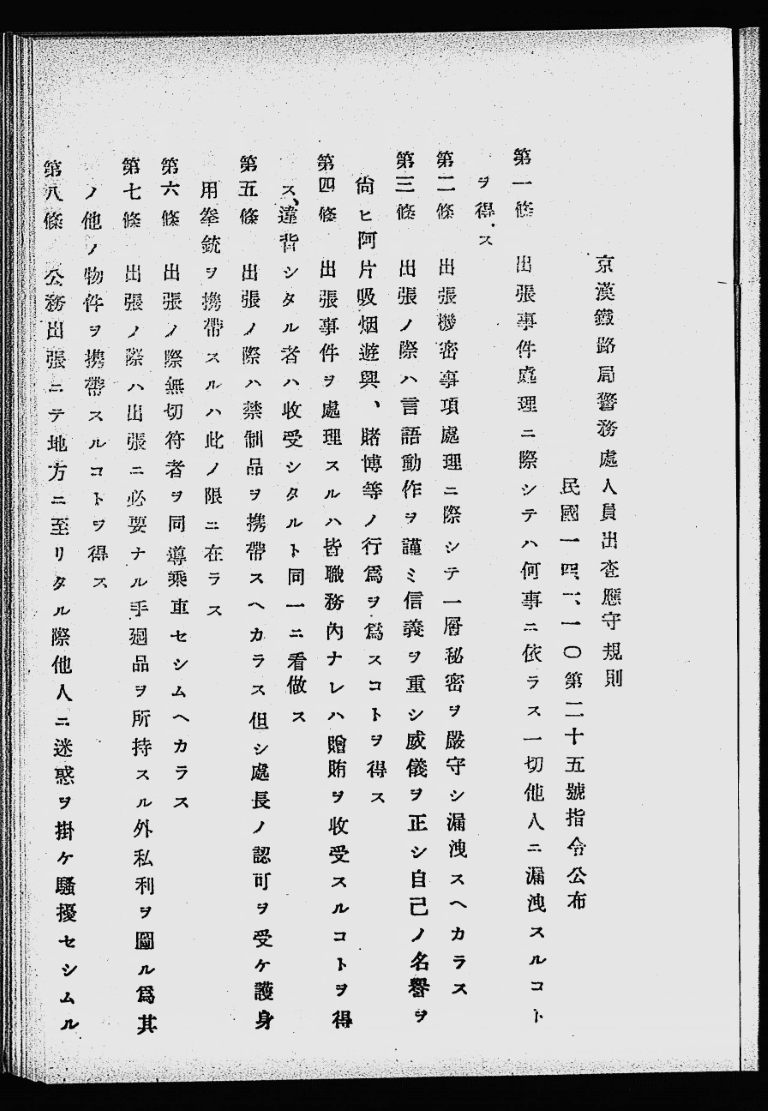 京漢鐵路局警務處人員出査應守規則
民國一四、一、一〇第二十五號指令公布
第一條　出張事件處理ニ際シテハ何事ニ依ラス一切他人ニ漏洩スルコト
ヲ得ス
第二條　出張機密事項處理ニ際シテ一層秘密ヲ嚴守シ漏洩スヘカラス
第三條　出張ノ際ハ言語動作ヲ謹ミ信義ヲ重シ威儀ヲ正シ自己ノ名譽ヲ
尙ヒ阿片吸烟遊興、賭博等ノ行爲ヲ爲スコトヲ得ス
第四條　出張事件ヲ處理スルハ皆職務內ナレハ贈賄ヲ收受スルコトヲ得
ス、違背シタル者ハ收受シタルト同一ニ看做ス
第五條　出張ノ際ハ禁制品ヲ携帶スヘカラス但シ處長ノ認可ヲ受ケ護身
用拳銃ヲ携帶スルハ此ノ限ニ在ラス
第六條　出張ノ際無切符者ヲ同導乘車セシムヘカラス
第七條　出張ノ際ハ出張ニ必要ナル手廻品ヲ所持スル外私利ヲ圖ル爲其
ノ他ノ物件ヲ携帶スルコトヲ得ス
第八條　公務出張ニテ地方ニ至リタル際他人ニ迷惑ヲ掛ケ騷擾セシムル